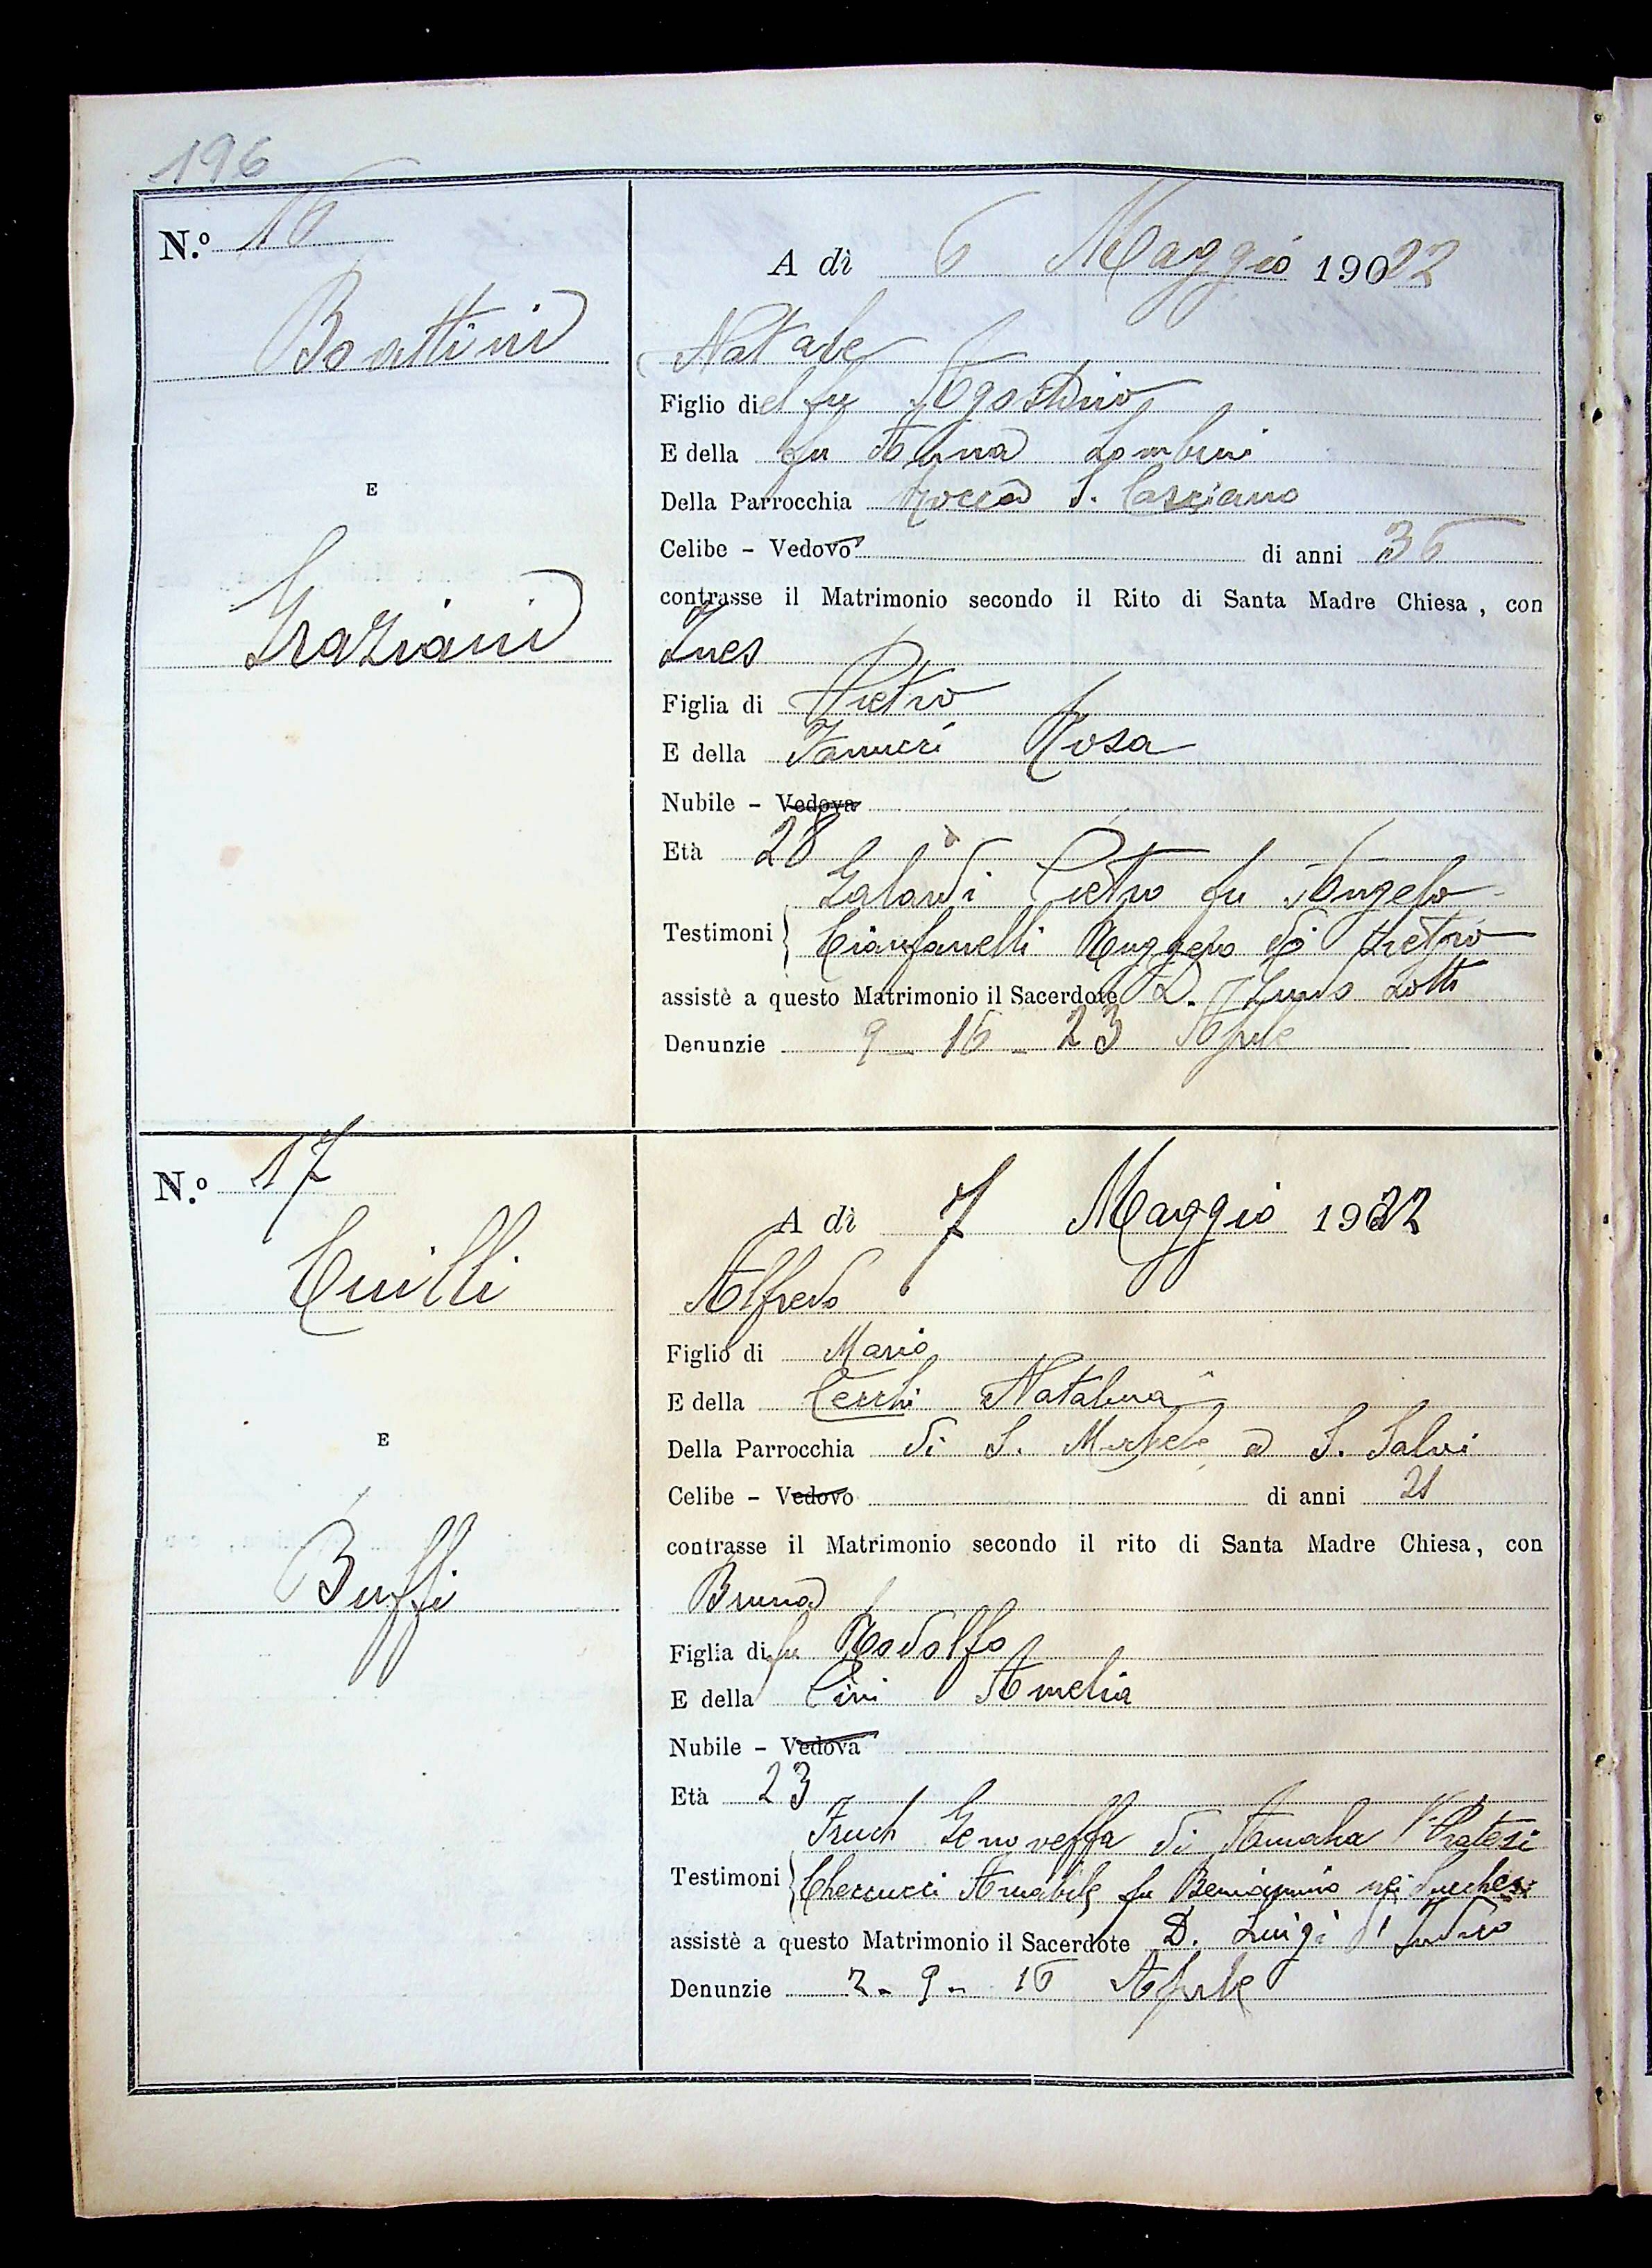 196
N.º 16
A dì 6 Maggio 19022
Bottini
Natale
Figlio di el fu Agostino
E della fu Anna Lombini
E
Della Parrocchia Rocca S. Casciano
Celibe - Vedovo di anni 36
contrasse il Matrimonio secondo il Rito di Santa Madre Chiesa, con
Graziani
Ines
Figlia di Pietro
E della Rosa
Nubile - Vedova
Età 28
Galardi Pietro fu Angelo
Testimoni Cianfanelli Ruggero di Pietro
assistè a questo Matrimonio il Sacerdote D. Lotti
Denunzie 9 - 16 - 23 Aprile
N.º 17
A dì 7 Maggio 1922
Cuilli
Alfredo
Figlio di Mario
E della Cecchi Natalina
E
Della Parrocchia di S. Michele a S. Salvi
Celibe - Vedovo di anni 21
contrasse il Matrimonio secondo il rito di Santa Madre Chiesa, con
Buffi
Bruna
Figlia di fu Rodolfo
E della Cini Amelia
Nubile - Vedova
Età 23
Genoveffa di Pratesi
Testimoni Cherucci Amabile fu Beniamino nei Lucchesi
assistè a questo Matrimonio il Sacerdote D. Luigi d'Indro
Denunzie 2 - 9 - 16 Aprile